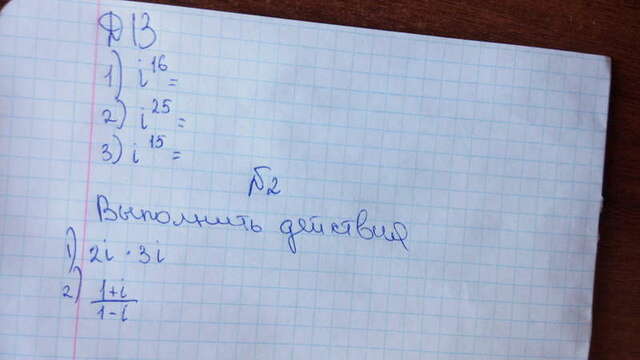 Д 13
1) i^16 =
2) i^25 =
3) i^15 =
№2
Выполнить действия
1) 2i · 3i
2) (1+i)/(1-i)